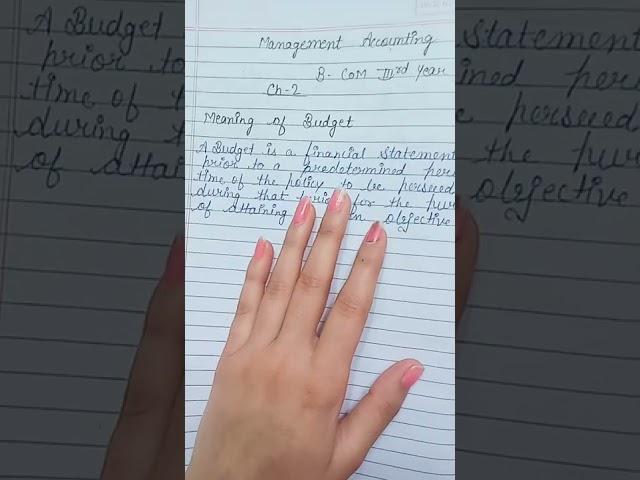 Management Accounting
B- Com IIIrd Year
Ch-2
Meaning of Budget
A Budget is a financial statement
prior to a predetermined per
time of the policy to be perseed
during that for the pur
of attaining objective